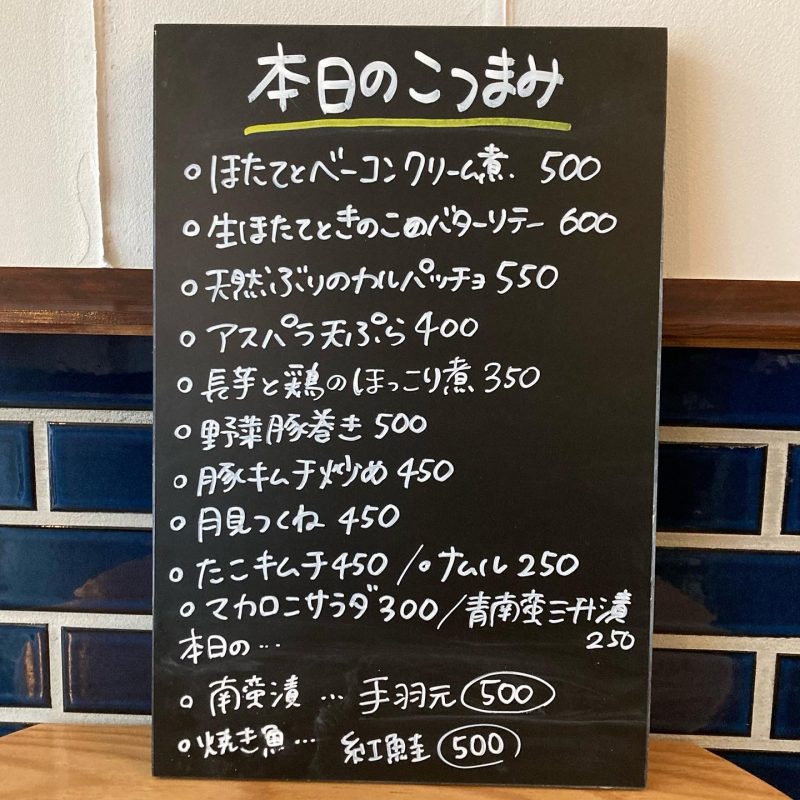 本日のこつまみ
○ほたてとベーコンクリーム煮. 500
○生ほたてときのこのバターソテー 600
○天然ぶりのカルパッチョ 550
○アスパラ天ぷら 400
○長芋と鶏のほっこり煮 350
○野菜豚巻き 500
○豚キムチ炒め 450
○月見つくね 450
○たこキムチ 450 /○ナムル 250
○マカロニサラダ 300/青南蛮三升漬 250
本日の…
○南蛮漬 … 手羽元 500
○焼き魚… 紅鮭 500